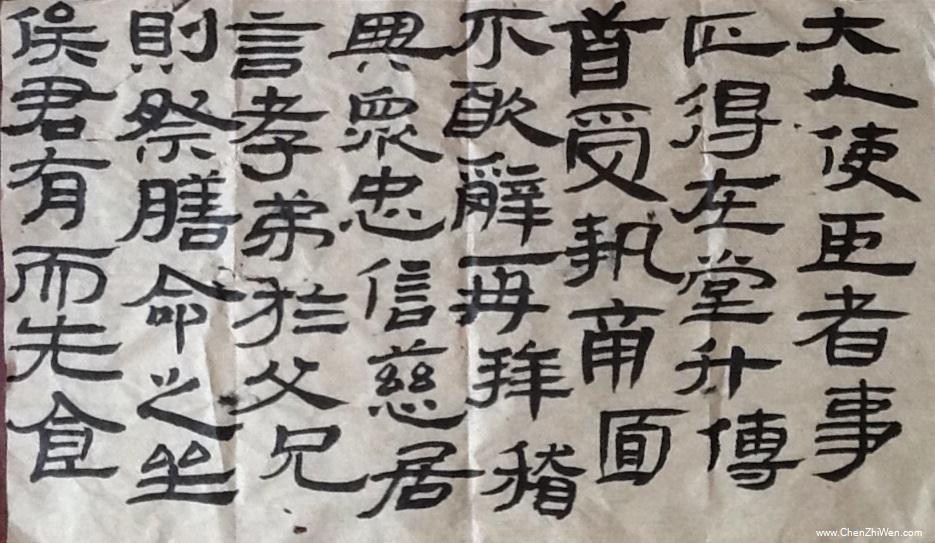 大人使臣者事
匹得在堂升傳
首受執南面
不敢辭再拜稽
與眾忠信慈居
言孝弟於父兄
則祭膳命之坐
俟君有而先食
www.ChenZhiWen.com